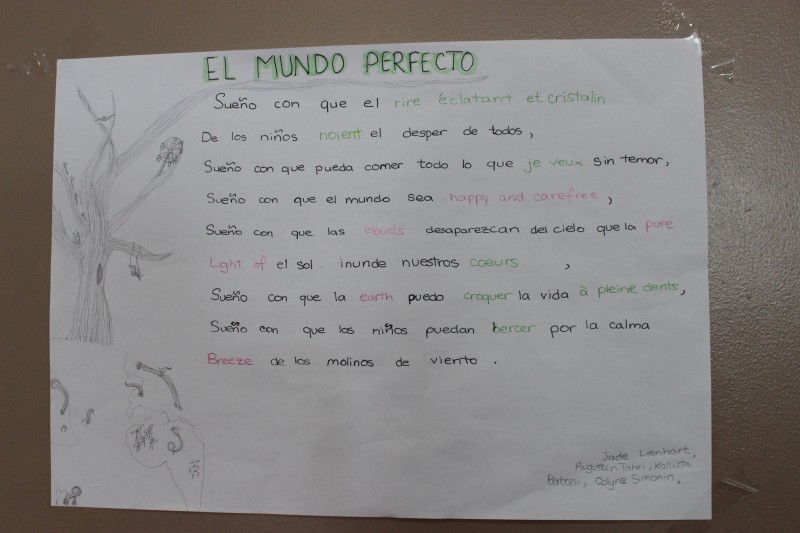 EL MUNDO PERFECTO
Sueño con que el rire éclatant et cristalin
De los niños noient el desper de todos,
Sueño con que pueda comer todo lo que je veux sin temor,
Sueño con que el mundo sea happy and carefree,
Sueño con que las clouds desaparezcan del cielo que la pure
Light of el sol. inunde nuestros coeurs ,
Sueño con que la earth puedo croquer la vida à pleine dents,
Sueño con que los niños puedan bercer por la calma
Breeze de los molinos de viento.
Jade Lienhart,
Augustin Tahri,
Colyne Simonin,